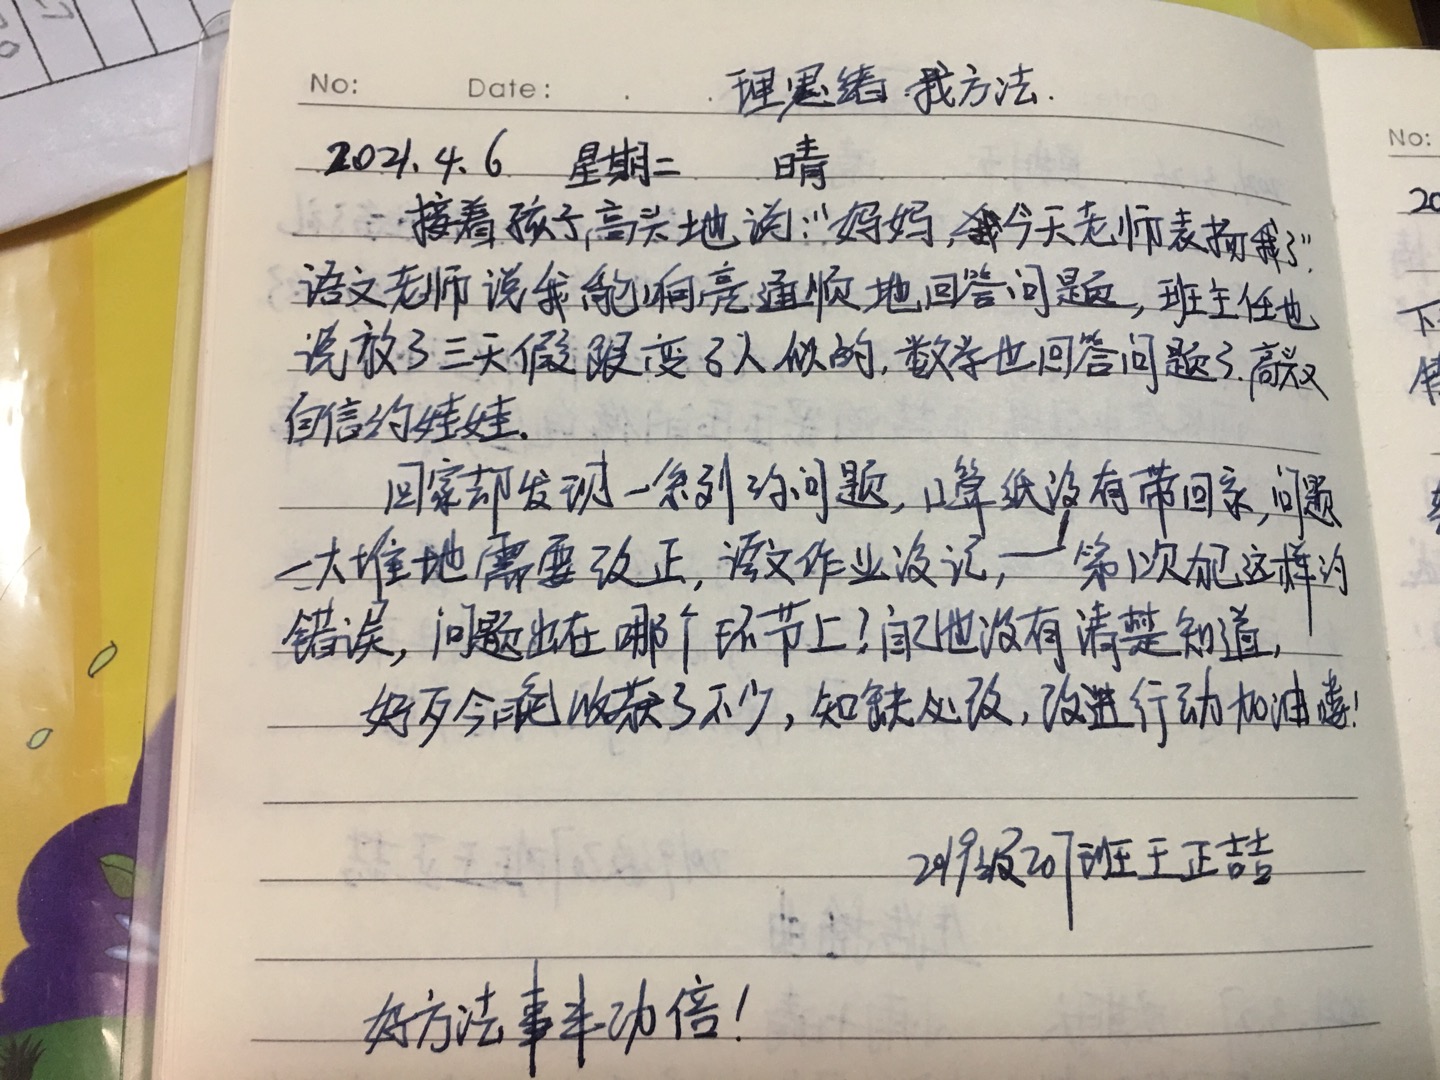 No: Date: 理思绪 找方法.
2021.4.6 星期二 晴
接着孩子,高兴地说:"妈妈,我今天老师表扬我了".
语文老师说我能响亮通顺地回答问题,班主任也
说放了三天假跟变了人似的,数学也回答问题了.高兴又
自信的娃娃.
回家却发现一系列的问题,口算纸没有带回家,问题
一大堆地需要改正,语文作业没记,——第1次犯这样的
错误,问题出在哪个环节上?自己也没有清楚知道,
好歹今晚收获了不少,知缺处改,改进行动加油喽!
2019级20班王正喆
好方法事半功倍!
No:
20
下